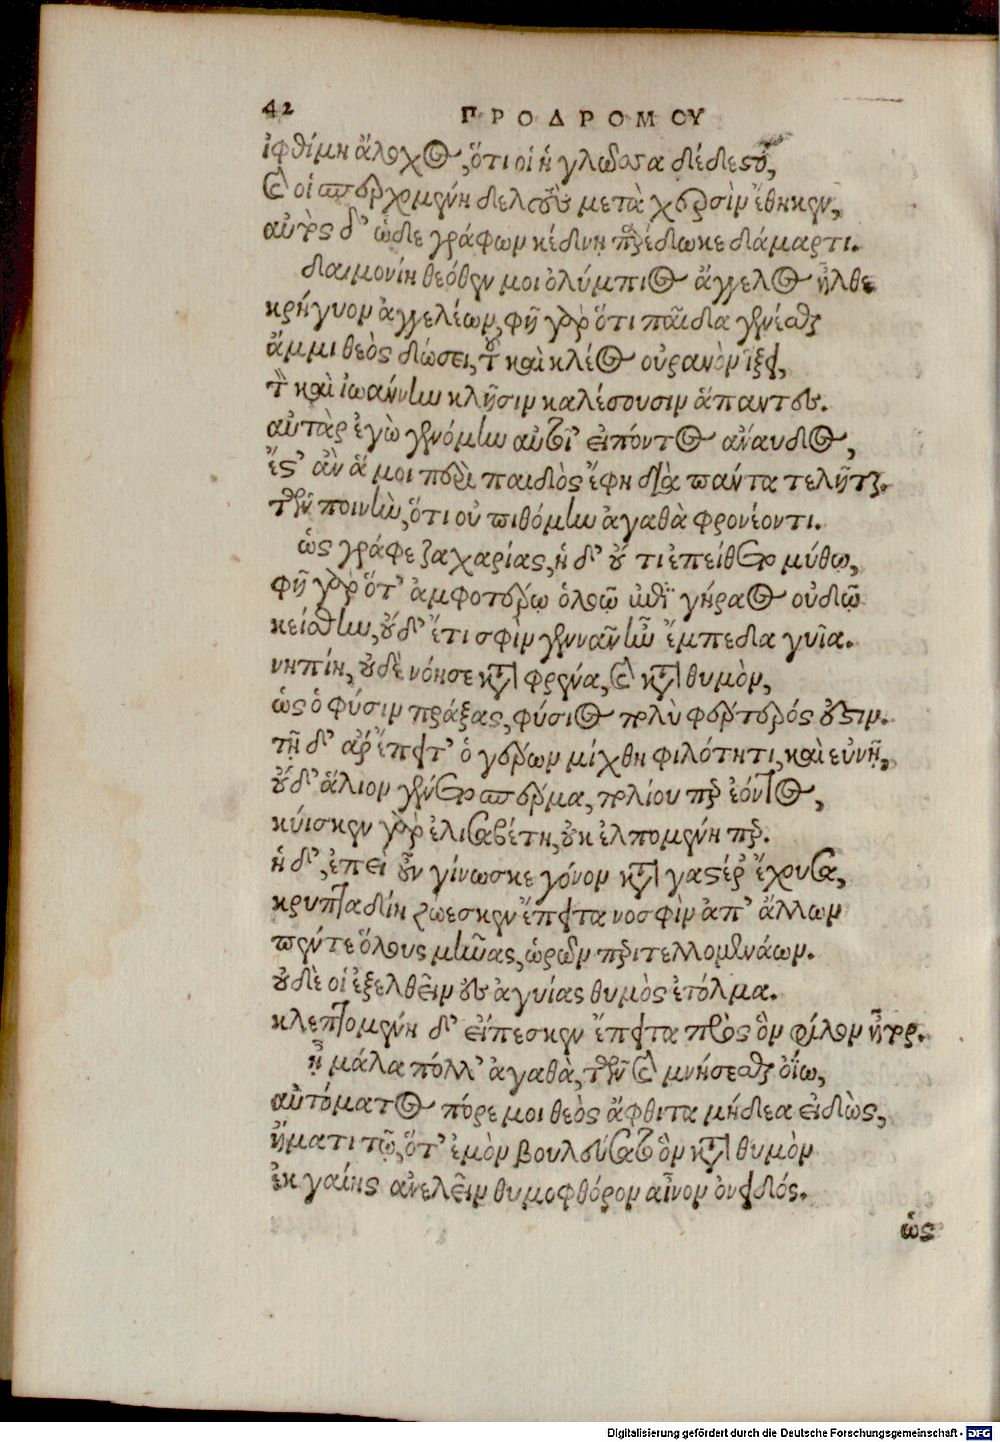 42 ΠΡΟΔΡΟΜΟΥ
ἰφθίμη ἄλοχος, ὅτι οἱ ἡ γλῶσσα δέδετο,
καὶ οἱ σπερχμένη δελτοὺ μετὰ χερσὶν ἔθηκεν,
αὐτὰρ ὅδ' ὧδε γράφων κέδνῃ παρέδωκε δάμαρτι.
δαιμονίη θεόθεν μοι ὀλύμπιος ἄγγελος ἦλθε
κρήγυον ἀγγελέων, φῆ γὰρ ὅτι παῖδα γενέσθαι
ἄμμι θεὸς δώσει, τοῦ καὶ κλέος οὐρανὸν ἵξει,
τὸν καὶ ἰωάννην κλῆσιν καλέσουσιν ἅπαντες.
αὐτὰρ ἐγὼ γενόμην αὐτῷ εἰπόντος ἄναυδος,
ἔστ' ἂν ἅ μοι περὶ παιδὸς ἔφη διὰ πάντα τελῆται.
τὴν ποινὴν, ὅτι οὐ πιθόμην ἀγαθὰ φρονέοντι.
ὡς γράφε ζαχαρίας, ἡ δ' οὔ τι ἐπείθετο μύθῳ,
φῆ γὰρ ὅτ' ἀμφοτέρῳ ὀλοῷ ἐπὶ γήραος οὐδῷ
κείσθην, οὐδ' ἔτι σφὶν γενναῖν ἦν ἔμπεδα γυῖα.
νηπίη, οὐδὲ νόησε κατὰ φρένα, καὶ κατὰ θυμὸν,
ὡς ὁ φύσιν πράξας, φύσιος πολὺ φέρτερός οὖσιν.
τῇ δ' ἄρ' ἔπειτ' ὁ γέρων μίχθη φιλότητι, καὶ εὐνῇ,
οὐδ' ἅλιον γένετο σπέρμα, πολίου περ ἐόντος,
κύισκεν γὰρ ἐλισαβέτη, οὐκ ἐλπομένη περ.
ἡ δ', ἐπεὶ οὖν γίνωσκε γόνον κατὰ γαστέρ' ἔχουσα,
κρυπταδίη ζώεσκεν ἔπειτα νοσφὶν ἀπ' ἄλλων
πέντε ὅλους μῆνας, ὡρῶν περιτελλομενάων.
οὐδὲ οἱ ἐξελθεῖν ἐς ἀγυίας θυμὸς ἐτόλμα.
κλεπτομένη δ' εἴπεσκεν ἔπειτα πρὸς ὃν φίλον ἦτορ.
ἦ μάλα πόλλ' ἀγαθὰ, τῶν καὶ μνήσεσθαι ὀΐω,
αὐτόματος πόρε μοι θεὸς ἄφθιτα μήδεα εἰδὼς,
ἤματι τῷ, ὅτ' ἐμὸν βουλεύσατο ὃν κατὰ θυμὸν
ἐκ γαίης ἀνελεῖν θυμοφθόρον αἶνον ὄνειδός.
ὡς
Digitalisierung gefördert durch die Deutsche Forschungsgemeinschaft - DFG